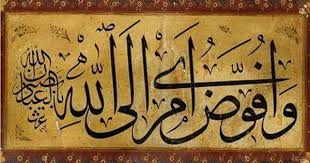 وَاُفَوِّضُ اَمْرِى اِلَى اللّٰهِ
ان الله بصير بالعباد